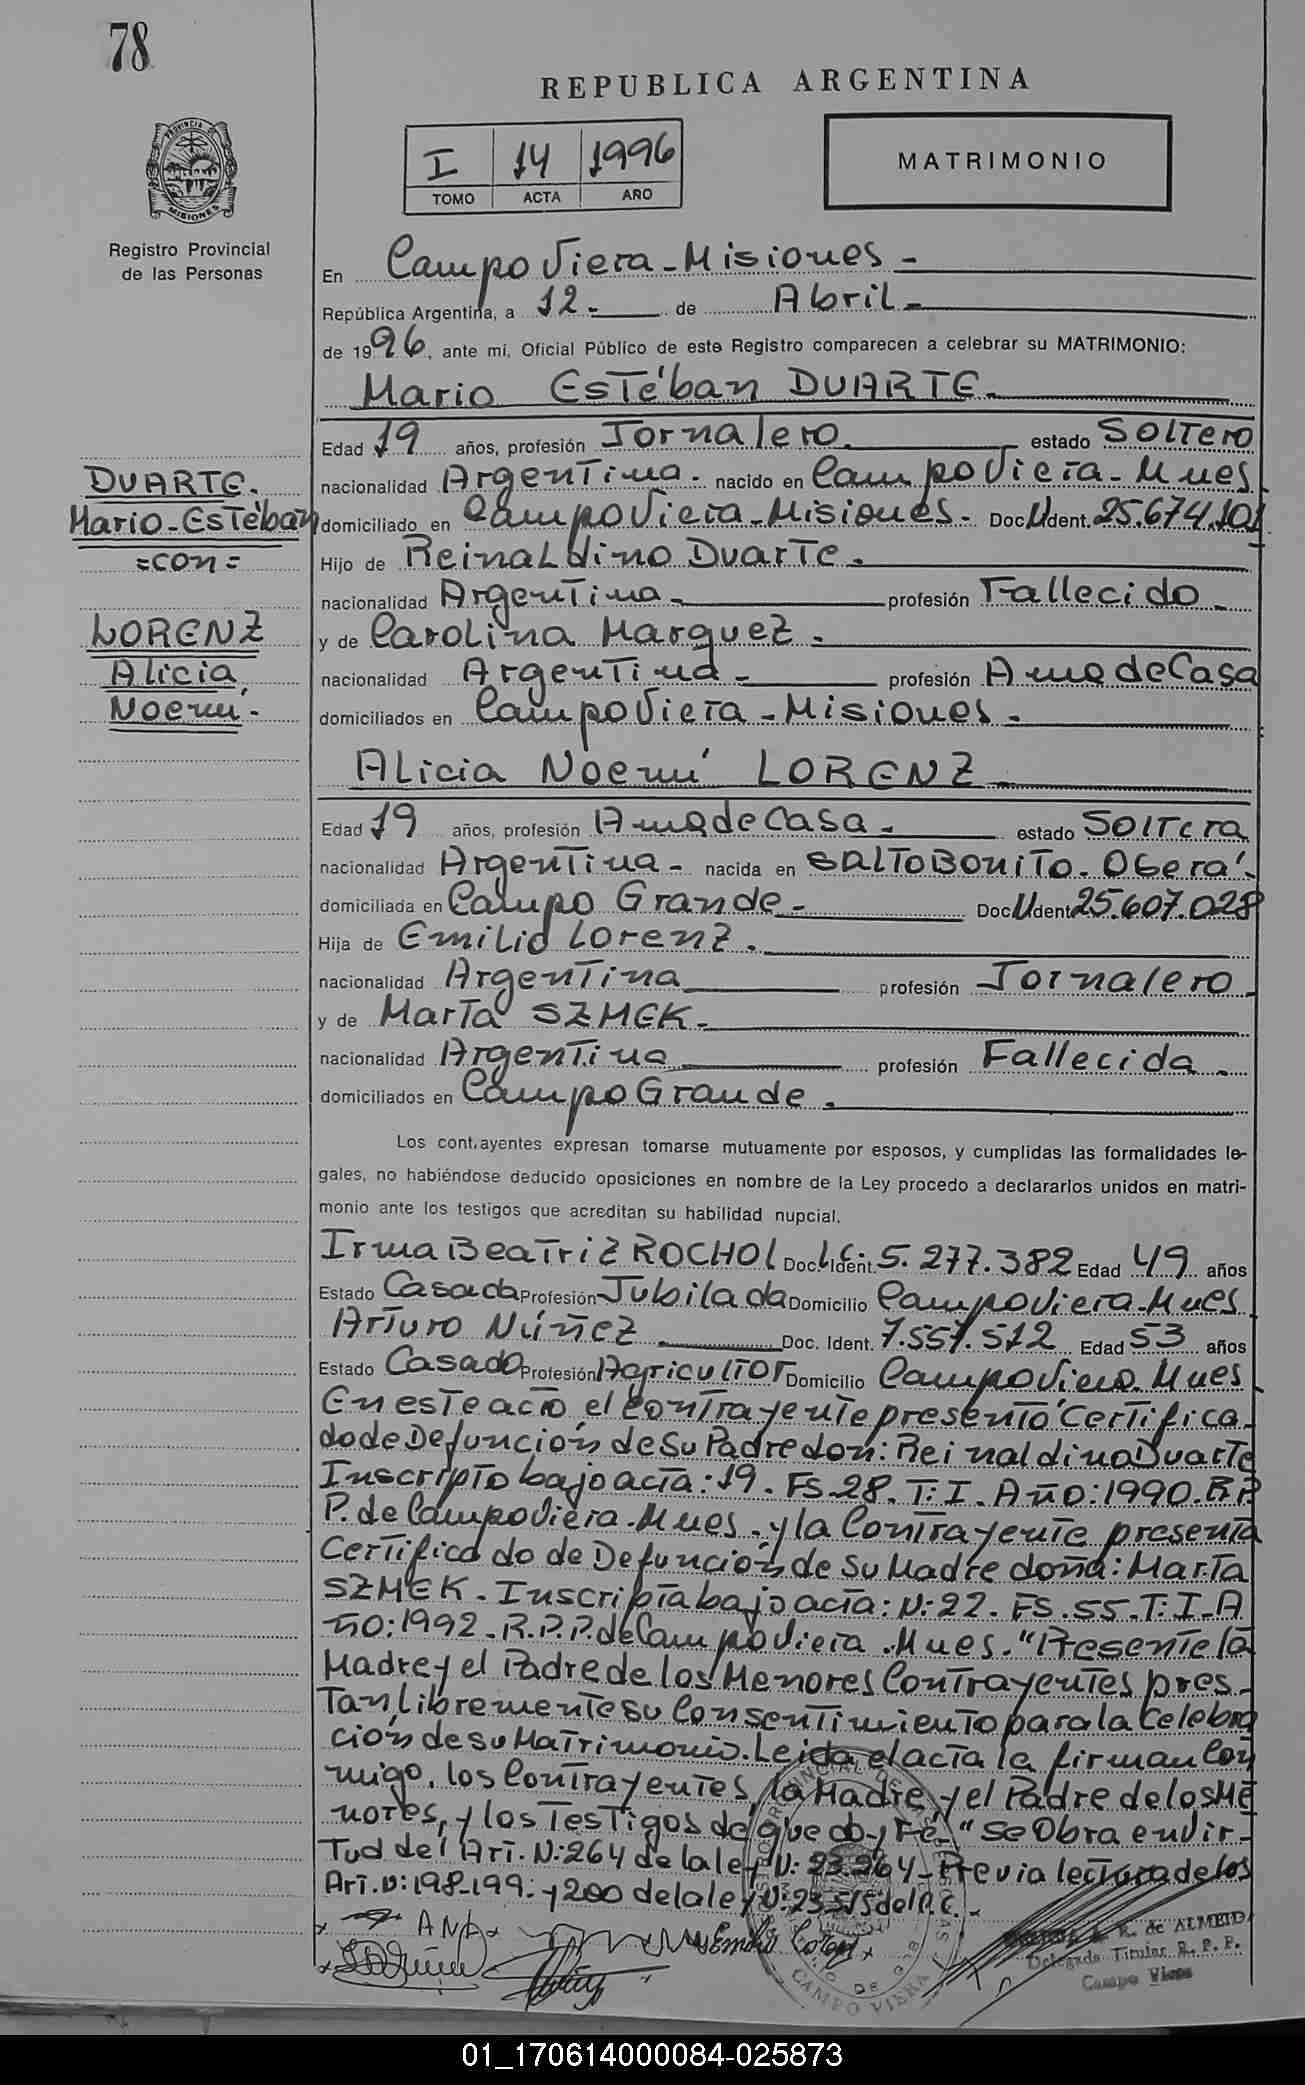 78
REPUBLICA ARGENTINA
I 14 1996
TOMO ACTA AÑO
MATRIMONIO
PROVINCIA
MISIONES
Registro Provincial
de las Personas
En Campo Viera - Misiones -
República Argentina, a 12 - de Abril -
de 1996, ante mi, Oficial Público de este Registro comparecen a celebrar su MATRIMONIO:
Mario Estéban DUARTE.
Edad 19 años, profesión Jornalero. estado Soltero
DUARTE.
Mario - Estéban
=con=
LORENZ
Alicia
Noemí.
nacionalidad Argentina. nacido en Campo Viera - Mnes
domiciliado en Campo Viera - Misiones. Doc. U Ident. 25.674.101
Hijo de Reinaldino Duarte.
nacionalidad Argentina. profesión Fallecido.
y de Carolina Marquez.
nacionalidad Argentina profesión Ama de Casa
domiciliados en Campo Viera - Misiones.
Alicia Noemí LORENZ
Edad 19 años, profesión Ama de Casa. estado Soltera
nacionalidad Argentina - nacida en Salto Bonito. Oberá.
domiciliada en Campo Grande - Doc. U Ident. 25.607.028
Hija de Emilio Lorenz.
nacionalidad Argentina profesión Jornalero.
y de Marta SZMEK.
nacionalidad Argentina profesión Fallecida.
domiciliados en Campo Grande.
Los contrayentes expresan tomarse mutuamente por esposos, y cumplidas las formalidades le-
gales, no habiéndose deducido oposiciones en nombre de la Ley procedo a declararlos unidos en matri-
monio ante los testigos que acreditan su habilidad nupcial.
Irma Beatriz ROCHOL Doc. L.C. Ident. 5.277.382 Edad 49 años
Estado Casada Profesión Jubilada Domicilio Campo Viera - Mnes
Arturo Núñez Doc. Ident. 7.557.512 Edad 53 años
Estado Casado Profesión Agricultor Domicilio Campo Viera. Mnes
En este acto el contrayente presentó Certifica-
do de Defunción de Su Padre don: Reinaldino Duarte
Inscripto bajo acta: 19. Fs. 28. T: I. Año: 1990. R.P.
P. de Campo Viera. Mnes. y la Contrayente presenta
Certificado de Defunción de Su Madre doña: Marta
SZMEK. Inscripta bajo acta: N: 22. Fs. 55. T: I. A
ño: 1992. R.P.P. de Campo Viera. Mnes. "Presente la
Madre y el Padre de los Menores Contrayentes pres-
tan libremente su Consentimiento para la Celebra
ción de su Matrimonio. Leida el acta la firman Con
migo, los Contrayentes, la Madre y el Padre de los Me
nores, y los Testigos de que doy Fé - "Se Obra en vir-
tud del Art. N: 264 de la ley N: 23.264 - Previa lectura de los
Art. N: 198 - 199. y 200 de la ley N: 23.515 del C.C. -
ANA
Emilio Lorenz
R. de ALMEID
Delegada Titular R. P. P.
Campo Viera
CAMPO VIERA
01_170614000084-025873